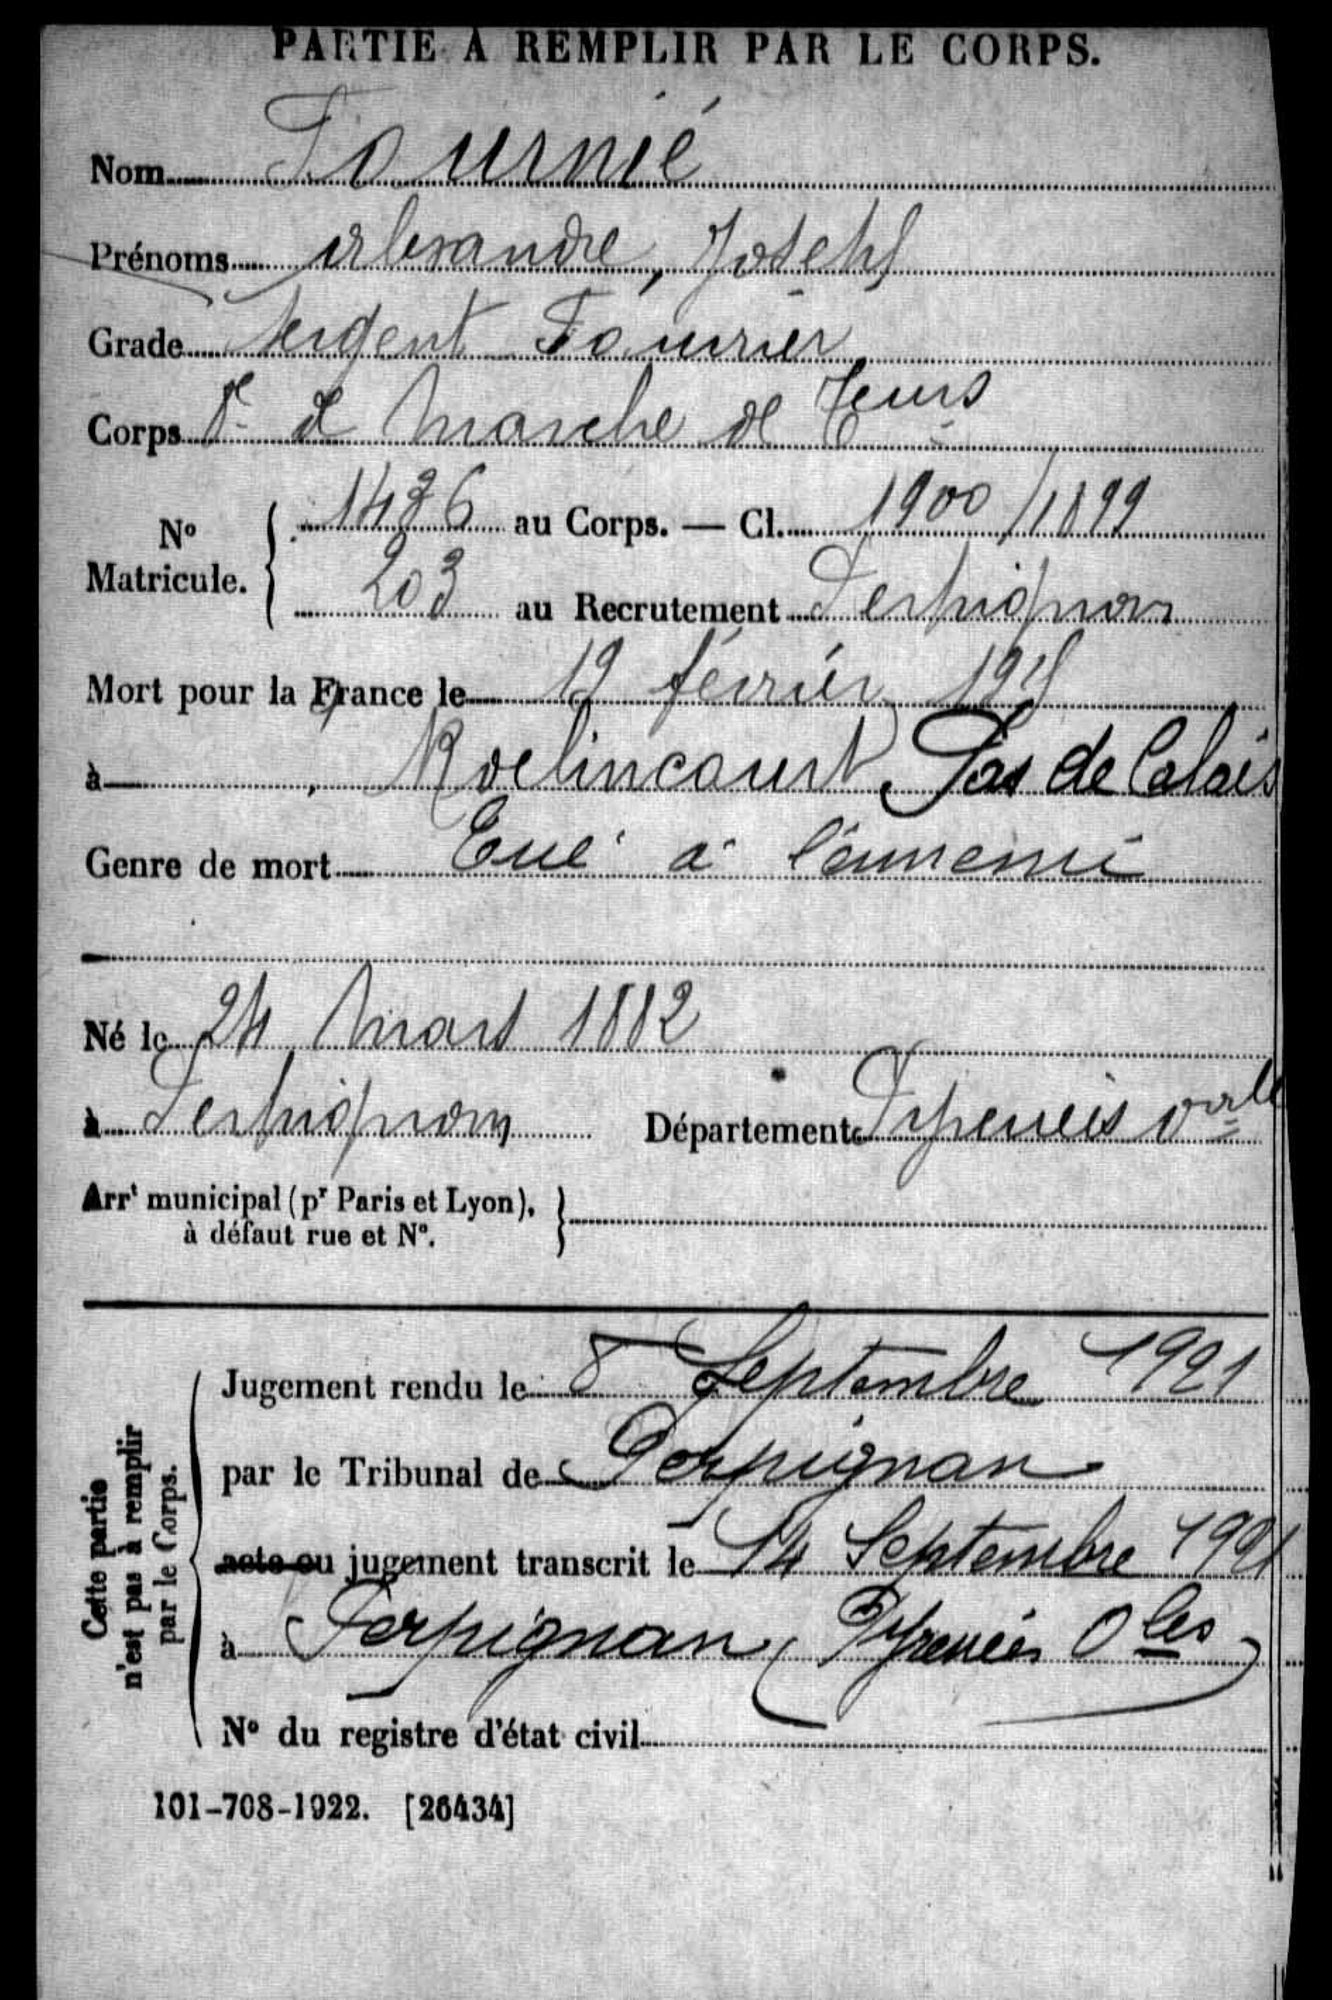 PARTIE A REMPLIR PAR LE CORPS.
Nom Fournié
Prénoms Alexandre, Joseph
Grade Sergent Fourrier
Corps 8e de Marche de Teurs
No Matricule. 1436 au Corps. — Cl. 1900/1899
203 au Recrutement Perpignan
Mort pour la France le 19 février 1915
à Roelincourt Pas de Calais
Genre de mort Tué à l'ennemi
Né le 24 Mars 1882
à Perpignan Département Pyrenées Orle
Arrt municipal (pr Paris et Lyon),
à défaut rue et No.
Cette partie
n'est pas à remplir
par le Corps.
Jugement rendu le 8 Septembre 1921
par le Tribunal de Perpignan
acte ou jugement transcrit le 14 Septembre 1921
à Perpignan (Pyrenées Oles)
No du registre d'état civil
101-708-1922. [26434]